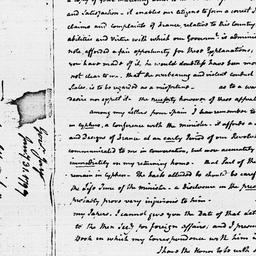 and Satisfaction - it enables our citizens to form a correct
claims and complaints of France relative to this Country
abilities and Virtue with which our Government is admini
note, afforded a fair opportunity for those Explanations,
you have made of it, he would doubtless have been more
not clear to us. that the overbearing and violent conduct
Sales, is to be regarded as a misfortune - as to a war
desire nor expect it - the necessity however of these appeal
Among my letters from Spain I have remember to
in cyphers, a conference with the minister. it affords a
and Designs of France at an early Period of our Revolu
communicated to me in conversation, but were accurately
immediately on my returning home. - that Part of the
remain in Cyphers. The hint alluded to should be care
the Life Time of the minister - a disclosure in the pres
probably prove very injurious to him -
my Papers. I cannot give you the Date of that Let
to the then Secy. for foreign affairs, and I presum
Book in which my correspondence with him i
I have the Honor to be with
Govr. Jay